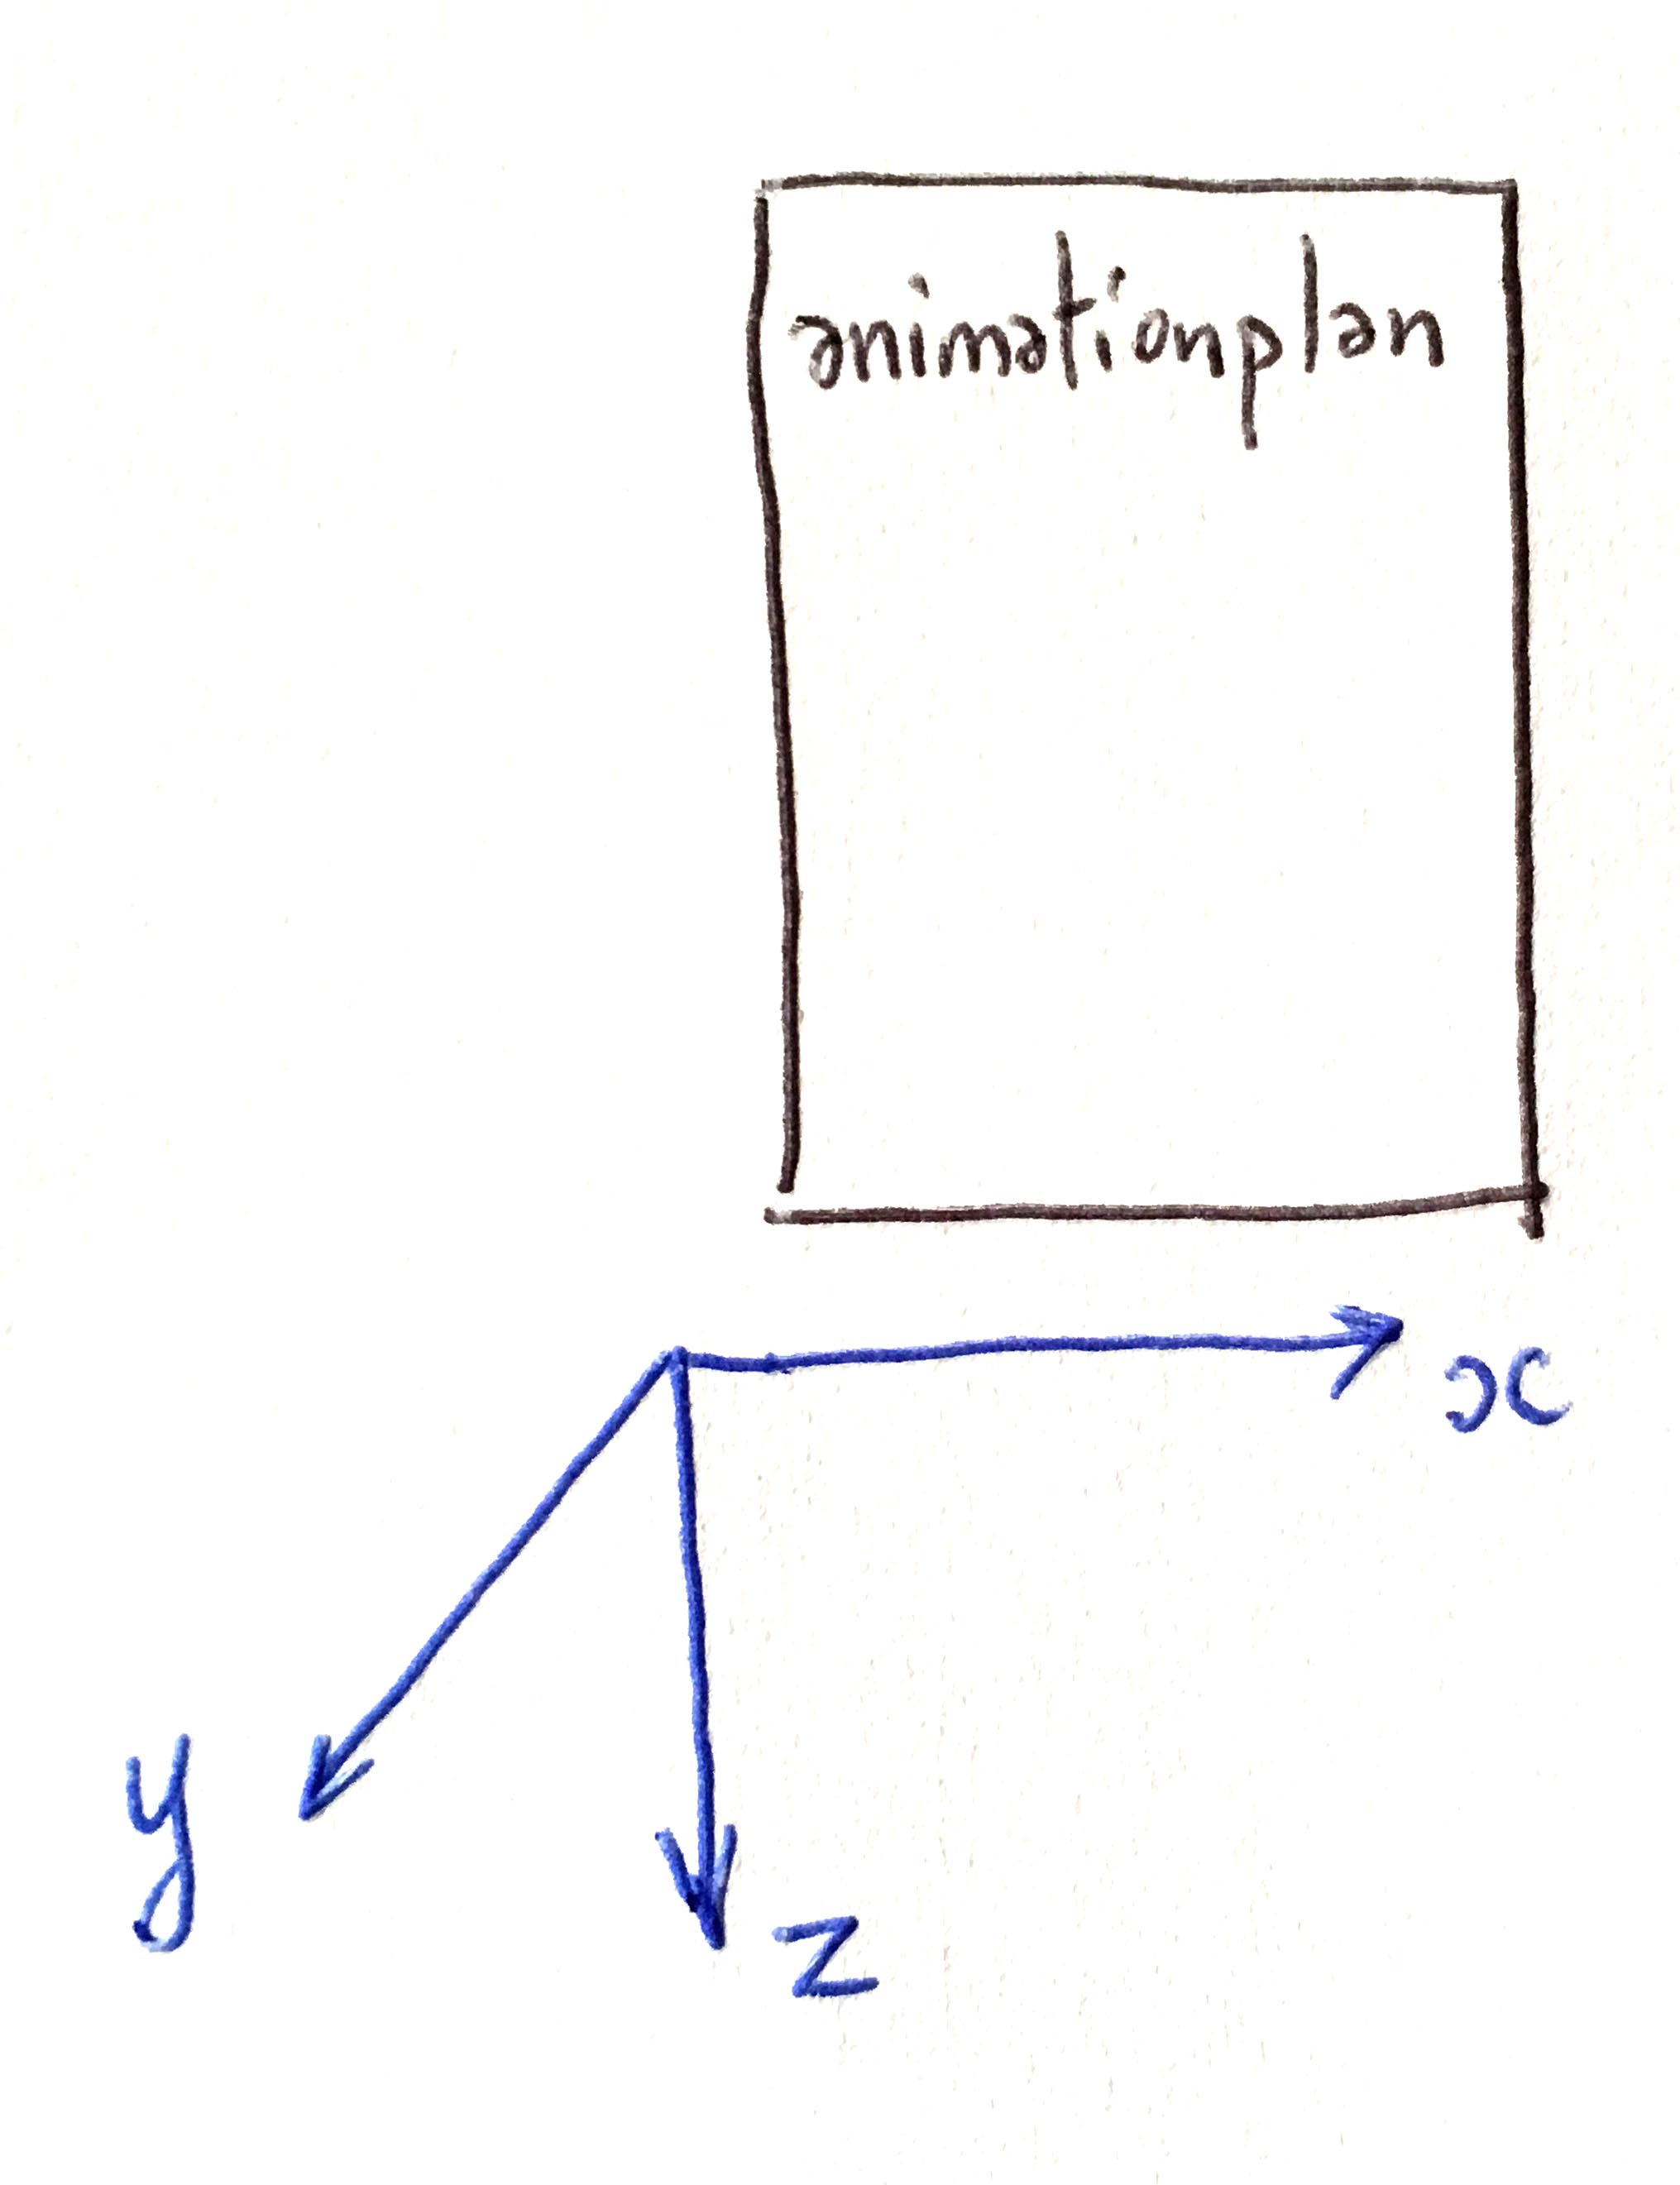 animationplan
x
y
z